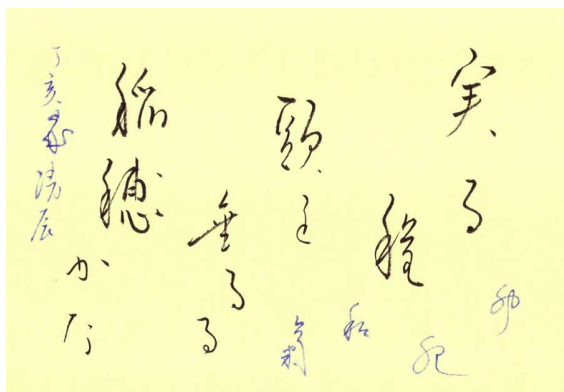 実る
程
頭を
垂るる
稲穂
かな
丁亥